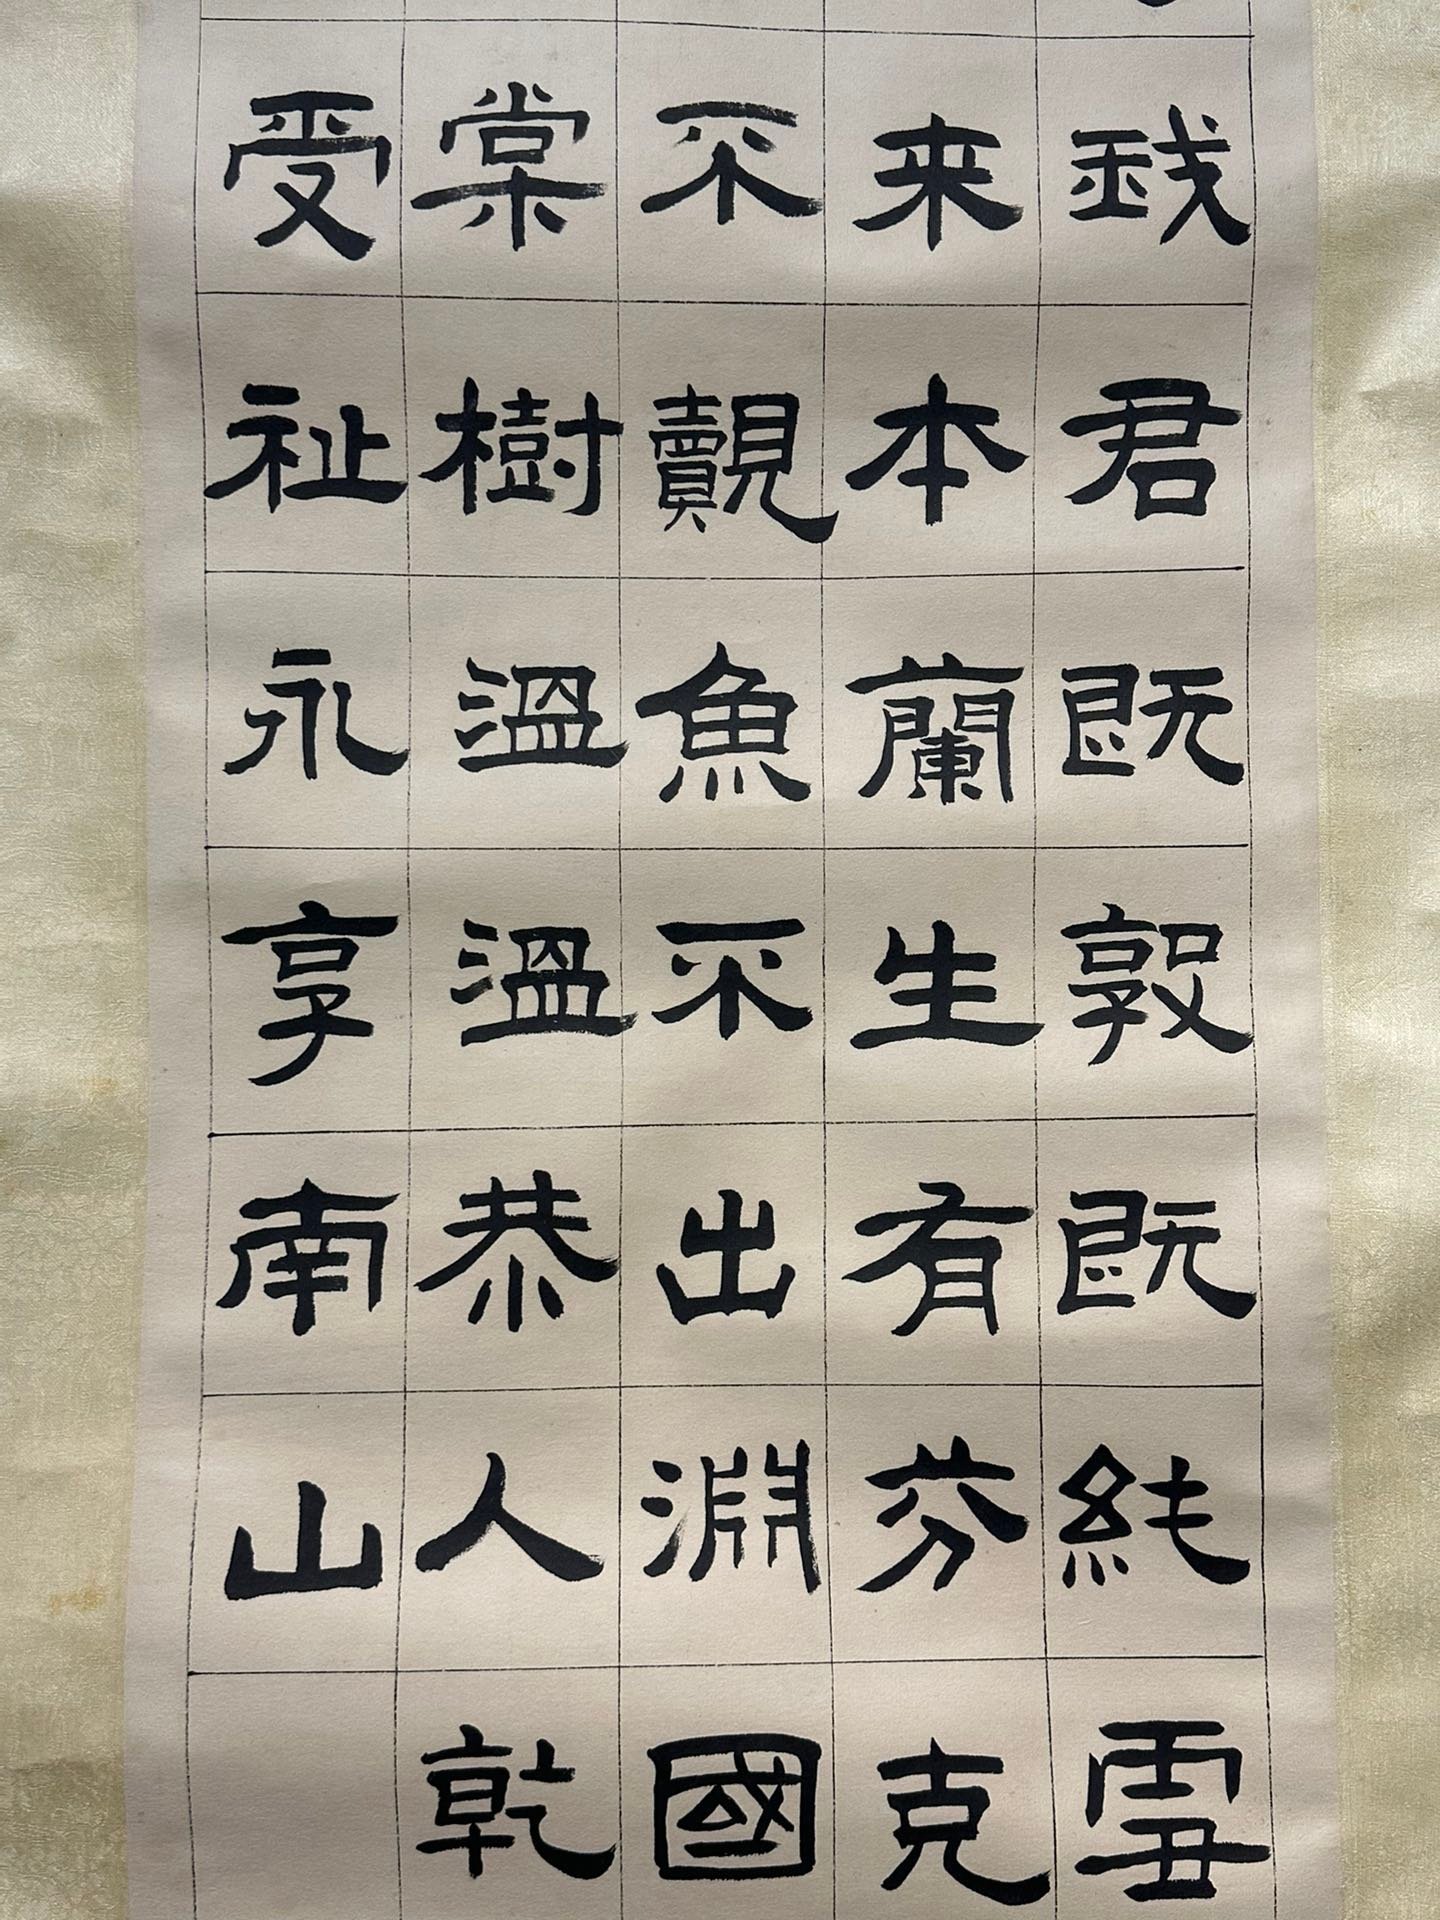 我君既敦既純雪
来本蘭生有芬克
不覿魚不出淵國
棠樹溫溫恭人乾
受祉永享南山